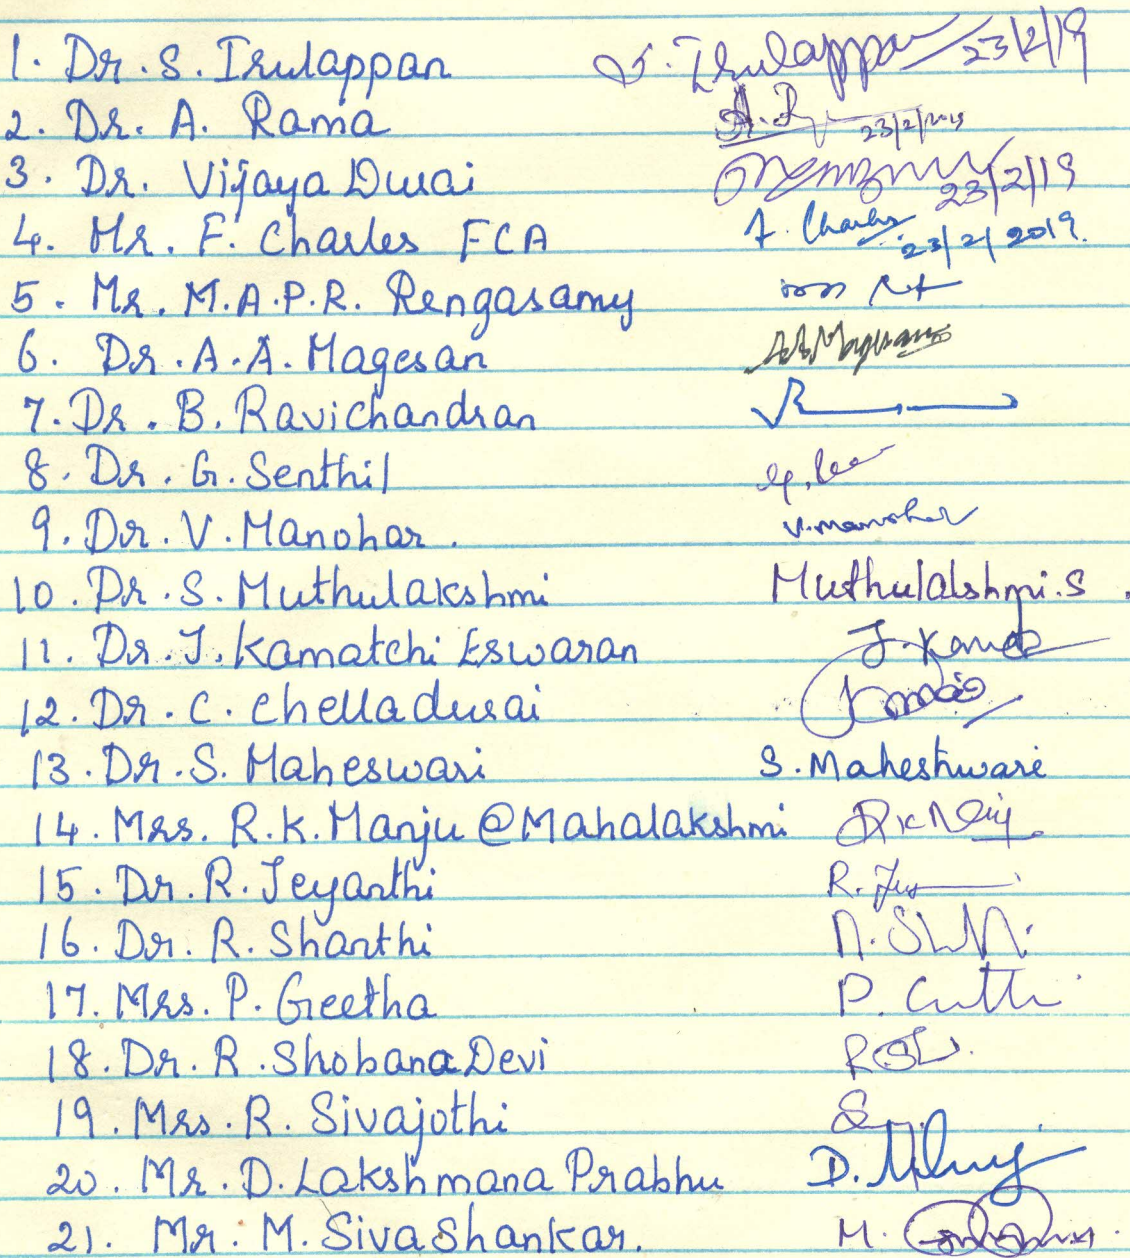 1. Dr. S. Irulappan S. Irulappan 23/2/19
2. Dr. A. Rama A. R 23/2/2019
3. Dr. Vijaya Durai 23/2/19
4. Mr. F. Charles FCA F. Charles 23/2/2019.
5. Mr. M.A.P.R. Rengasamy
6. Dr. A.A. Magesan A.A. Magesan
7. Dr. B. Ravichandran
8. Dr. G. Senthil
9. Dr. V. Manohar. V. manohar
10. Dr. S. Muthulakshmi Muthulalshmi.S
11. Dr. J. Kamatchi Eswaran
12. Dr. C. Chelladurai
13. Dr. S. Maheswari S. Maheshwari
14. Mrs. R.K. Manju @Mahalakshmi
15. Dr. R. Jeyanthi
16. Dr. R. Shanthi
17. Mrs. P. Geetha
18. Dr. R. Shobana Devi
19. Mrs. R. Sivajothi
20. Mr. D. Lakshmana Prabhu
21. Mr. M. SivaShankar.